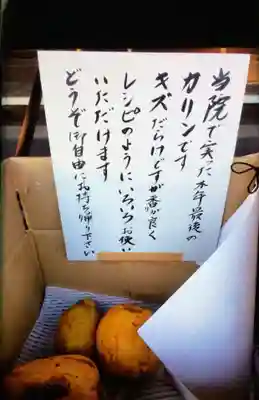 当院で実った本年最後の
カリンです
キズだらけですが香が良く
レシピのようにいろいろお使い
いただけます
どうぞ御自由にお持ち帰り下さい